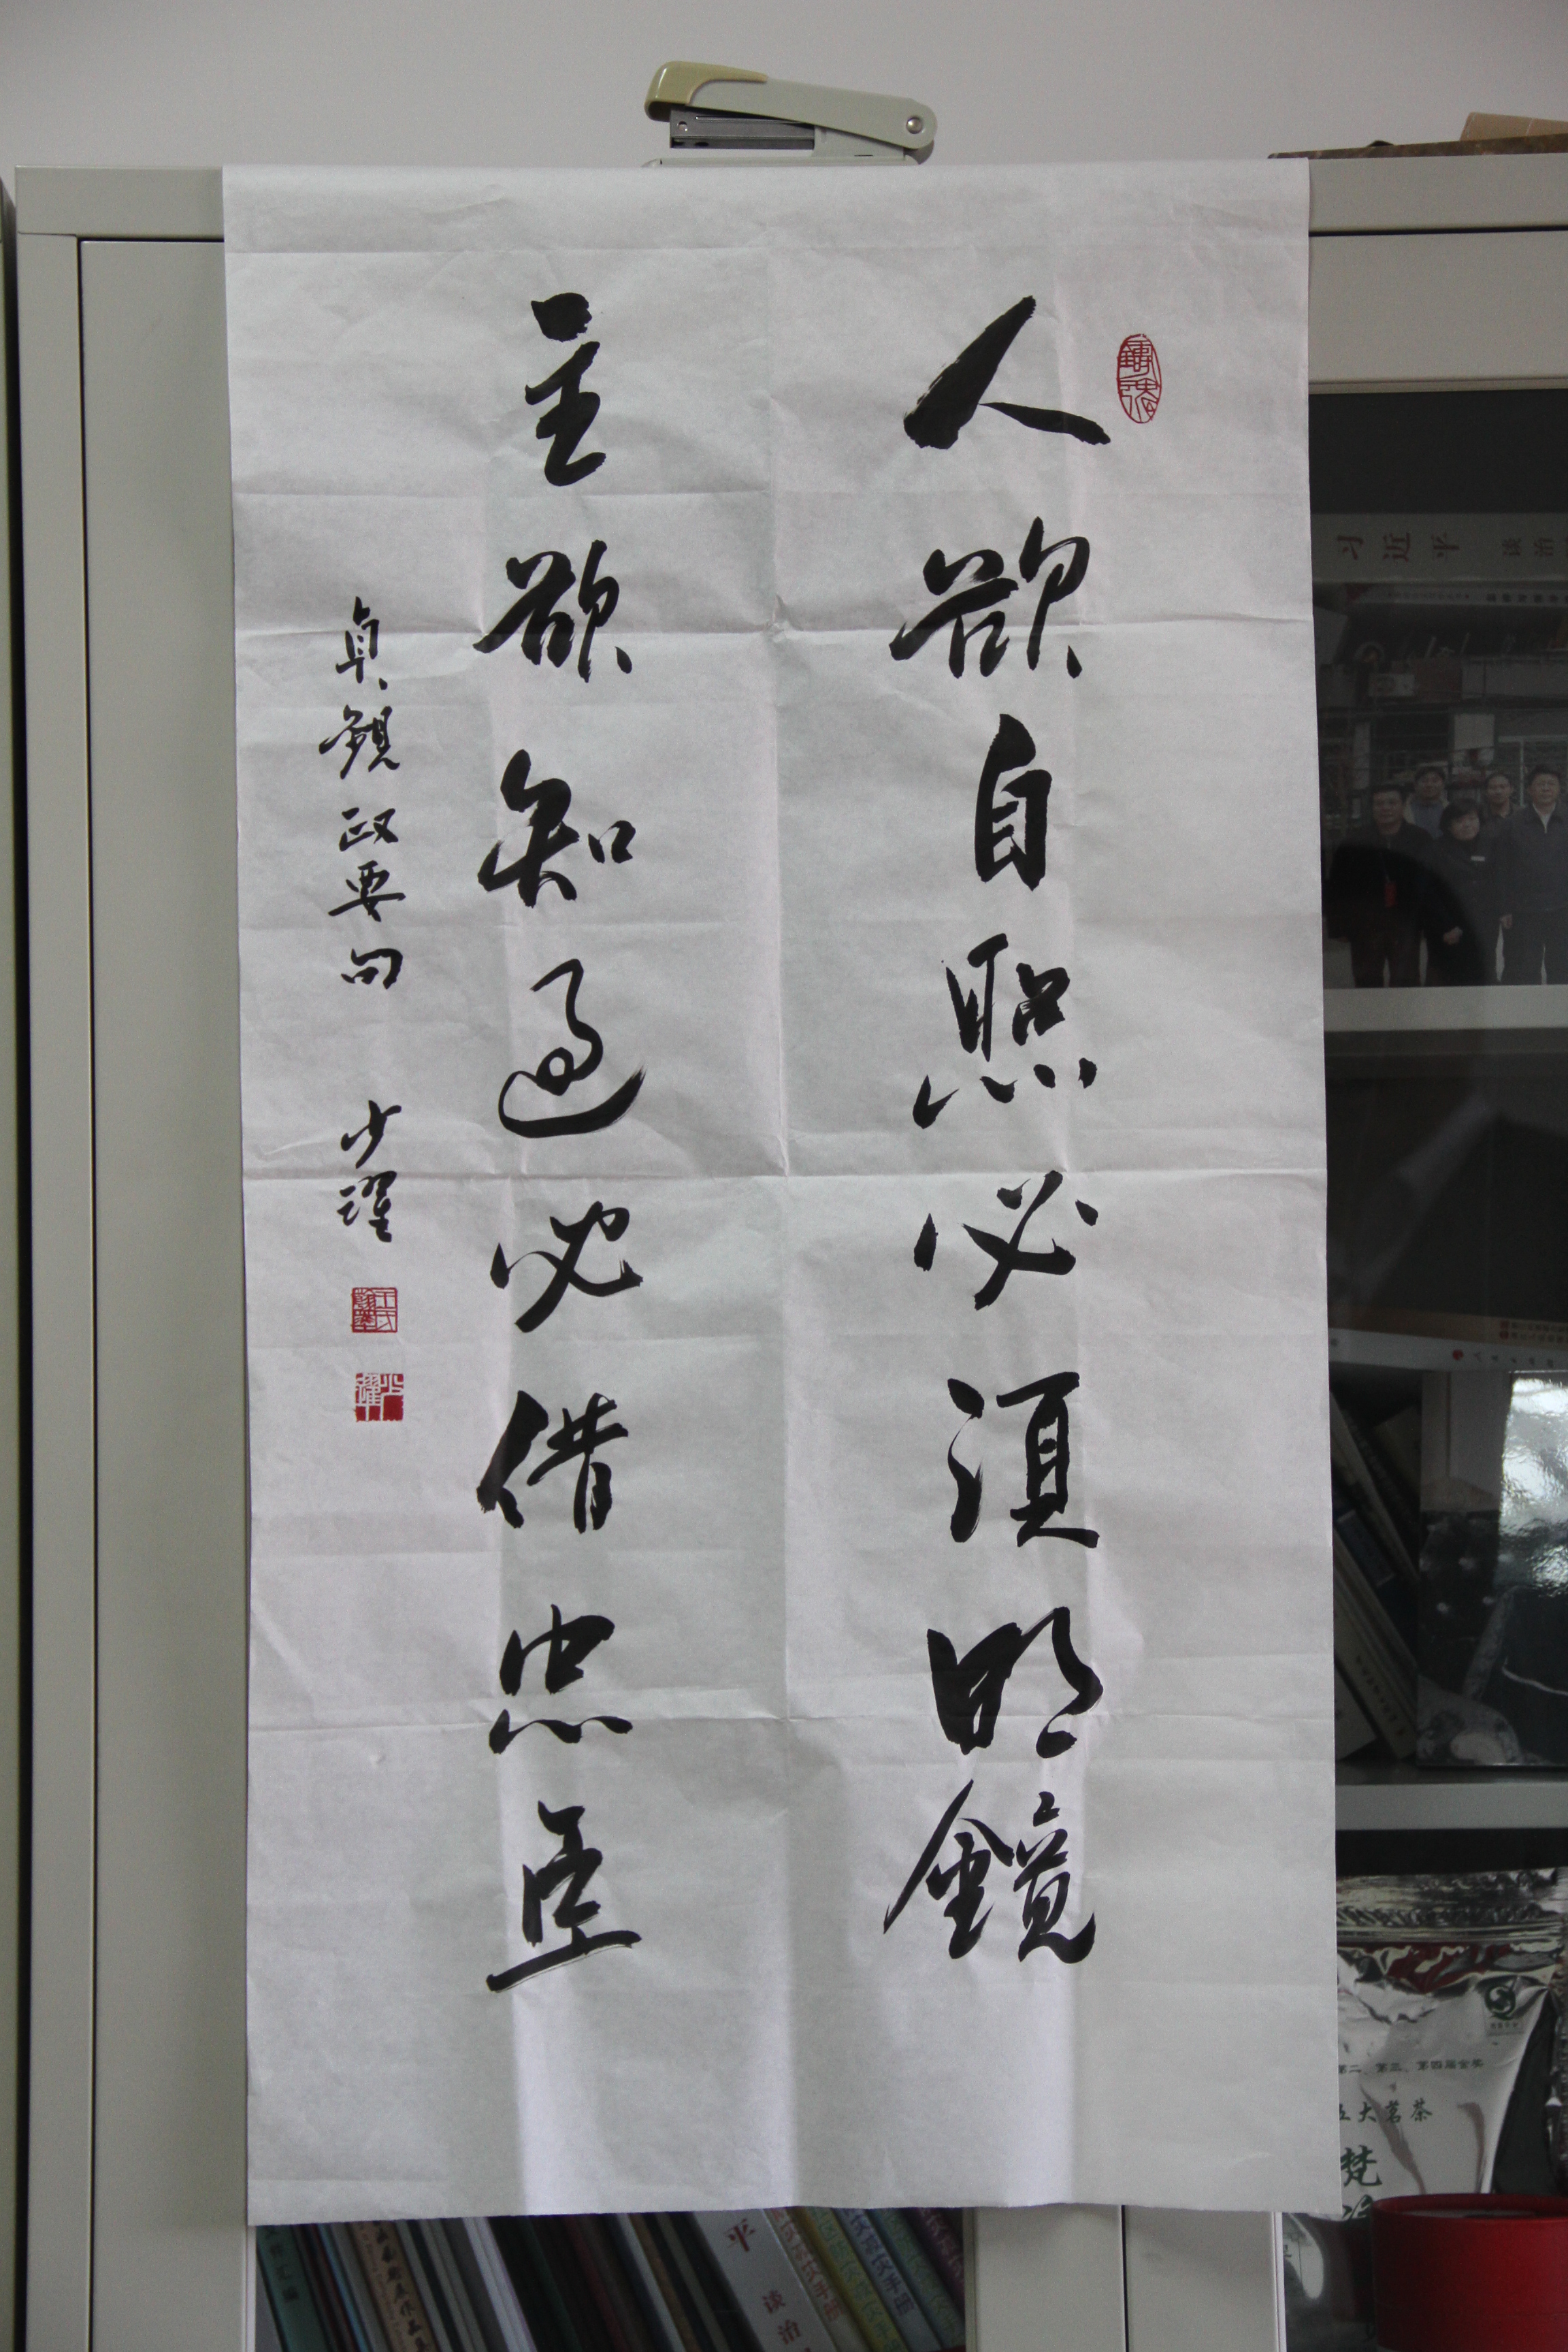 人欲自照必須明鏡
主欲知過必借忠臣
貞觀政要句 少躍
习近平 谈治
第二、第三、第四届金奖
五大茗茶
梵
平 谈治